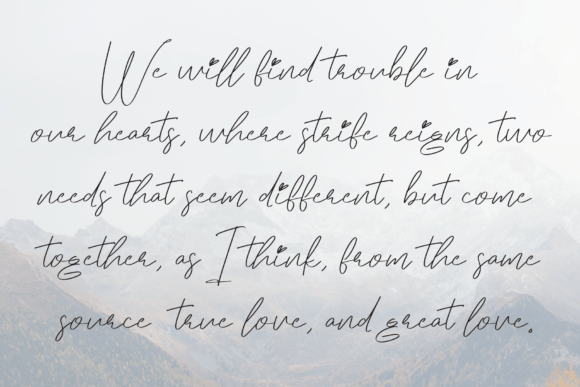 We will find trouble in
our hearts, where strife reigns, two
needs that seem different, but come
together, as I think, from the same
source true love, and great love.